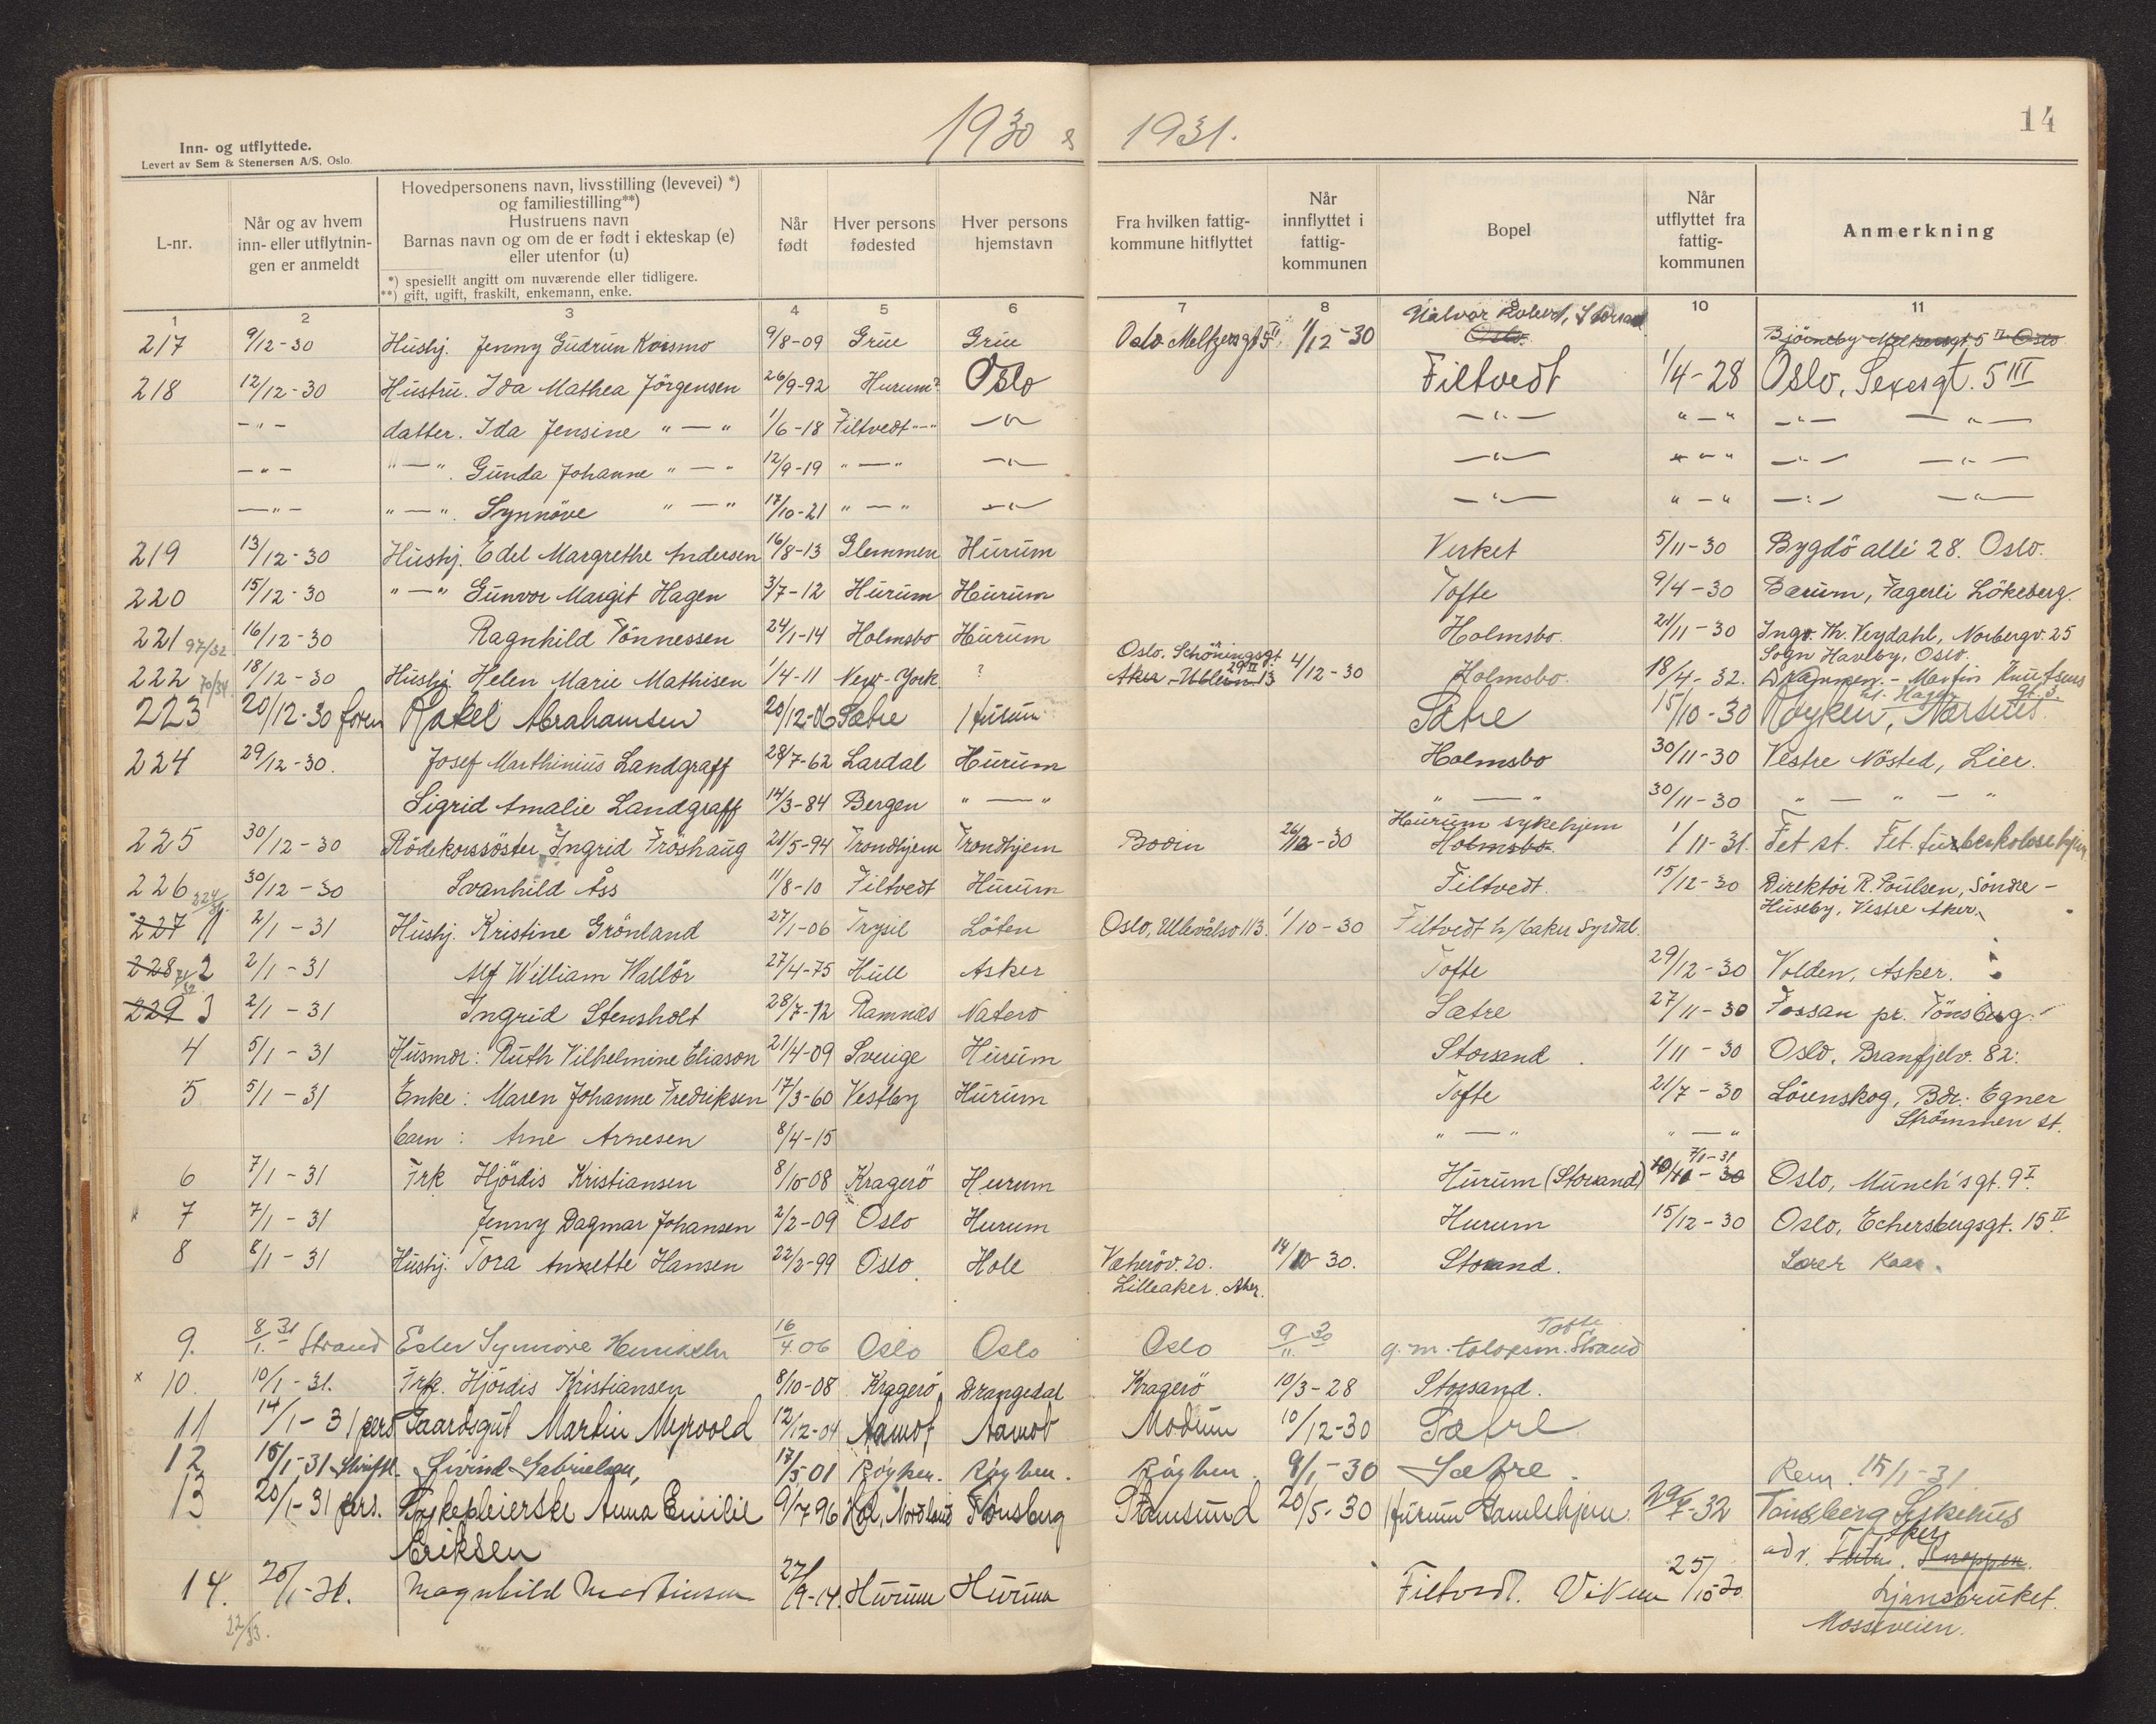 Inn- og utflyttede.
Levert av Sem & Stenersen A/S. Oslo.
1930 & 1931.
14
L-nr.
Når og av hvem inn- eller utflytnin-gen er anmeldt
Hovedpersonens navn, livsstilling (levevei) *)
og familiestilling**)
Hustruens navn
Barnas navn og om de er født i ekteskap (e)
eller utenfor (u)
*) spesiellt angitt om nuværende eller tidligere.
**) gift, ugift, fraskilt, enkemann, enke.
Når født
Hver persons fødested
Hver persons hjemstavn
Fra hvilken fattig-kommune hitflyttet
Når innflyttet i fattig-kommunen
Bopel
Når utflyttet fra fattig-kommunen
Anmerkning
1 2 3 4 5 6 7 8 9 10 11
Halvor Robert, Storsand
217 9/12-30 Hushj. Jenny Gudrun Kvismo 9/8-09 Grue Grue Oslo Meltzersgt 5 II 1/12-30 Oslo. Bjørneby Meltzersgt 5 II Oslo
218 12/12-30 Hustru. Ida Mathea Jörgensen 26/9-92 Hurum? Oslo Filtvedt 1/4-28 Oslo, Sexesgt. 5 III
-"- datter. Ida Jensine "—" 1/6-18 Filtvedt -"- —"— —"— "-" —"— —"—
-"- "—". Gunda Johanne "—" 12/9-19 "—" —"— —"— "-" —"— —"—
—"- "—". Synnöve "—" 17/10-21 "—" —"— —"— "-" —"— —"—
219 13/12-30 Hushj. Edel Margrethe Andersen 16/8-13 Glemmen Hurum Verket 5/11-30 Bygdö allé 28. Oslo.
220 15/12-30 "—" Gunvor Margit Hagen 3/7-12 Hurum Hurum Tofte 9/4-30 Bærum, Fagerli Lökeberg.
221 97/32 16/12-30 Ragnhild Tönnessen 24/1-14 Holmsbo Hurum Holmsbo. 21/11-30 Ingv. Th. Veydahl, Norbergv. 25
Sogn Haveby, Oslo.
Oslo. Schöningsgt. 29 II
222 70/34 18/12-30 Hushj. Helen Marie Mathisen 1/4-11 New-York ? Aker - Ullern 13 4/12-30 Holmsbo. 18/4-32. Drammen. - Martin Knutsens gt. 3.
223 20/12-30 foren Rakel Abrahamsen 20/12-06 Sætre Hurum Sætre 15/10-30 Røyken, Nærsnes.
224 29/12-30. Josef Marthinius Landgraff 28/7-62 Lardal Hurum Holmsbo 30/11-30 Vestre Nösted, Lier.
Sigrid Amalie Landgraff 14/3-84 Bergen "—" "—" 30/11-30 "—"—"
Hurum sykehjem
225 30/12-30 Rödekorssöster Ingrid Fröshaug 21/5-94 Trondhjem Trondhjem Bodin 26/12-30 Holmsbo. 1/11-31. Fet st. Fet. tuberkolosehjem.
226 324/31. 30/12-30 Svanhild Åss 11/8-10 Filtvedt Hurum Filtvedt. 15/12-30 Direktör R. Poulsen, Söndre -
Huseby, Vestre Aker.
227 1 2/1-31 Hushj. Kristine Grönland 27/1-06 Trysil Löten Oslo, Ullevålsv 113. 1/10-30 Filtvedt h/baker Syrdal.
228 2 2/1-31 Alf William Wallör 27/4-75 Hull Asker Tofte 29/12-30 Volden, Asker.
229 3 2/1-31 Ingrid Stensholt 28/7-12 Ramnæs Nøterö Sætre 27/11-30 Fossan pr. Tönsberg.
4 5/1-31 Husmor: Ruth Vilhelmine Eliason 21/4-09 Sverige Hurum Storsand. 1/11-30 Oslo, Branfjelv. 82.
5 5/1-31 Enke: Maren Johanne Fredriksen 17/3-60 Vestby Hurum Tofte 21/7-30 Lörenskog, Bdr. Egner
Strömmen st.
barn: Arne Arnesen 8/4-15 "—" "—"
7/1-31
6 7/1-31 Frk Hjördis Kristiansen 8/10-08 Kragerö Hurum Hurum (Storsand) 10/11-30 Oslo, Munch's gt. 9 I
x 7 7/1-31 Jenny Dagmar Johansen 2/2-09 Oslo Hurum Hurum 15/12-30 Oslo, Echersbergsgt. 15 II
8 8/1-31 Hushj. Tora Annette Hansen 22/2-99 Oslo Hole Vækeröv. 20. 14/10-30. Storsand.
Lilleaker. Aker.
Tofte
9. 8/1.31 Strand Ester Synnöve Henriksen 16/4.06 Oslo Oslo Oslo 9/11 30 g.m. Strand
x 10. 10/1-31. Frk. Hjördis Kristiansen 8/10-08 Kragerö Drangedal Kragerö 10/3-28 Storsand.
11 14/1-31 pers Gaardsgut Martin Myrvold 12/12-04 Aamot Aamot Modum 10/12-30 Sætre
12 15/1-31 skriftl. Øivind Gabrielsen, 17/5 01 Røyken. Røyken. Røyken. 9/1-30 Sætre. Rem. 15/1-31
13 20/1-31 pers. Sykepleierske Anna Emilie 9/7 96 Hol, Nordland Tønsberg Stamsund 20/5-30 Hurum Gamlehjem. 29/7-32 Tønsberg Sykehus
Eriksen
14. 20/1-31. Magnhild Martinsen 27/9-14. Hurum Hurum Filtvedt. Viken 25/10 30 adv. Knoppen.
Ljansbruket.
22/33.
Mosseveien.